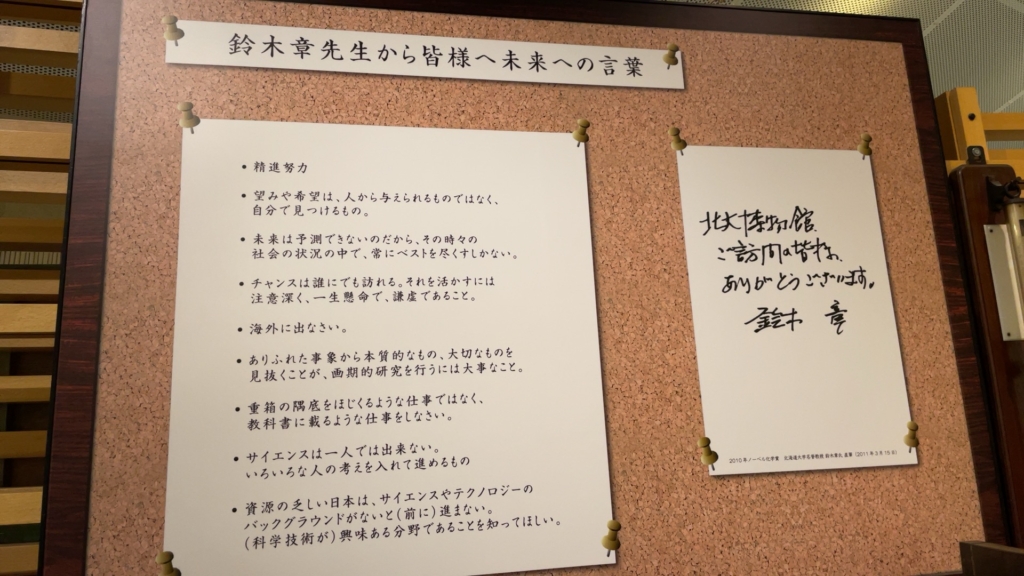 鈴木章先生から皆様へ未来への言葉
• 精進努力
• 望みや希望は、人から与えられるものではなく、
自分で見つけるもの。
• 未来は予測できないのだから、その時々の
社会の状況の中で、常にベストを尽くすしかない。
• チャンスは誰にでも訪れる。それを活かすには
注意深く、一生懸命で、謙虚であること。
• 海外に出なさい。
• ありふれた事象から本質的なもの、大切なものを
見抜くことが、画期的研究を行うには大事なこと。
• 重箱の隅底をほじくるような仕事ではなく、
教科書に載るような仕事をしなさい。
• サイエンスは一人では出来ない。
いろいろな人の考えを入れて進めるもの
• 資源の乏しい日本は、サイエンスやテクノロジーの
バックグラウンドがないと(前に)進まない。
(科学技術が)興味ある分野であることを知ってほしい。
北大博物館
ご訪問の皆様、
ありがとうございます。
鈴木 章
2010年ノーベル化学賞 北海道大学名誉教授 鈴木章氏 直筆 (2011年3月